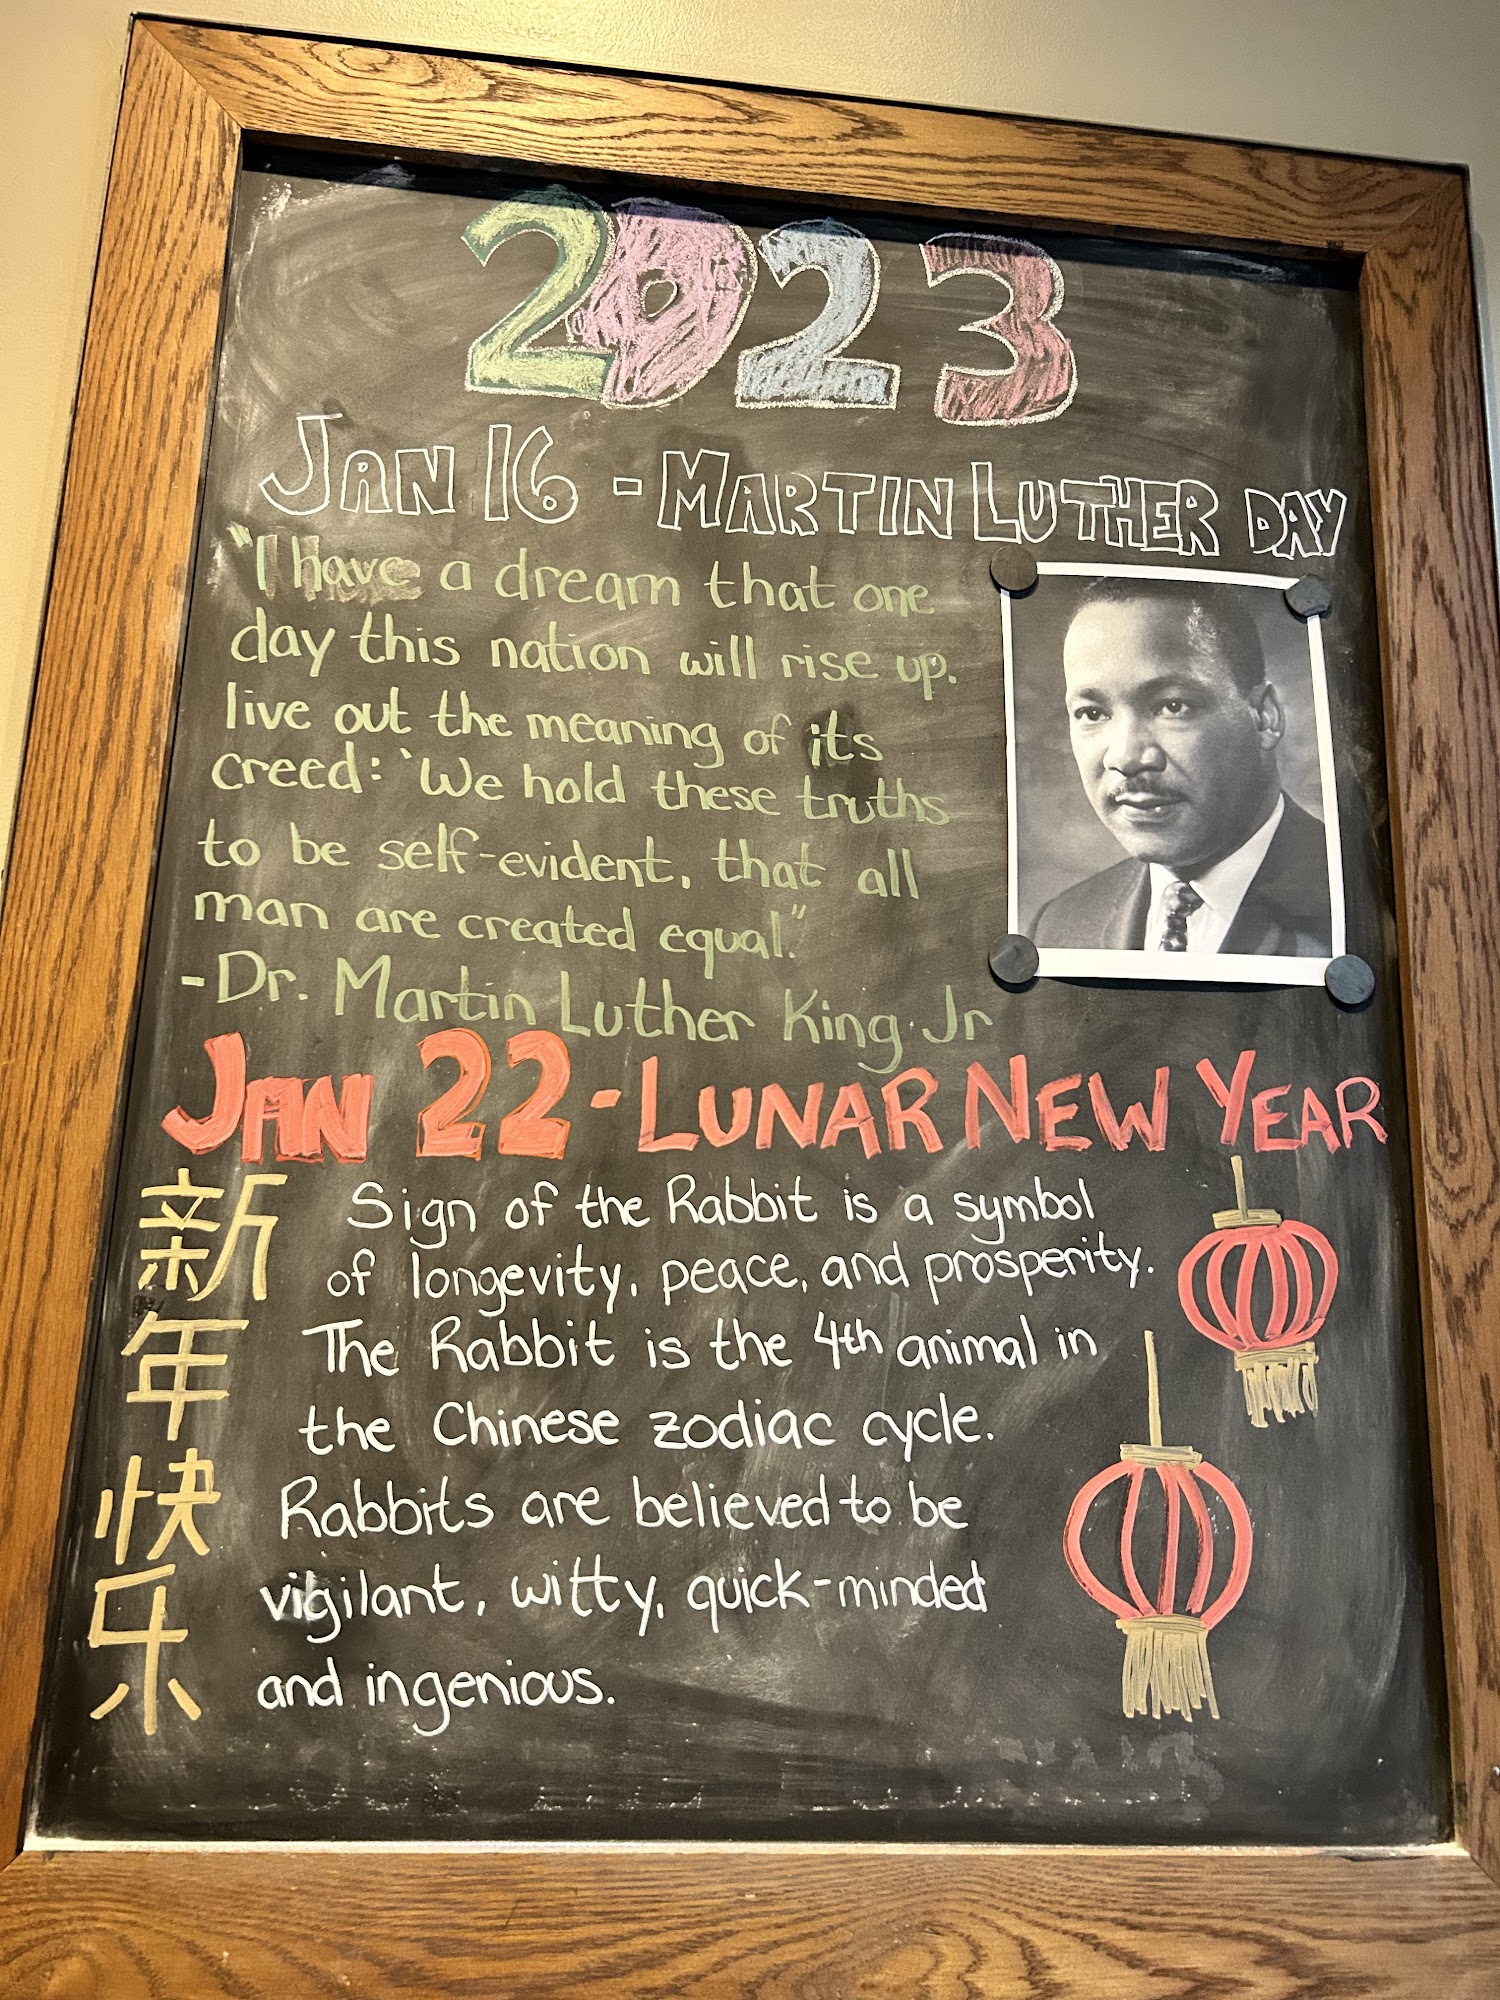 2023
JAN 16 - MARTIN LUTHER DAY
"I have a dream that one
day this nation will rise up.
live out the meaning of its
creed: 'We hold these truths
to be self-evident, that all
man are created equal."
- Dr. Martin Luther King Jr
JAN 22 - LUNAR NEW YEAR
新年快乐
Sign of the Rabbit is a symbol
of longevity, peace, and prosperity.
The Rabbit is the 4th animal in
the Chinese zodiac cycle.
Rabbits are believed to be
vigilant, witty, quick-minded
and ingenious.